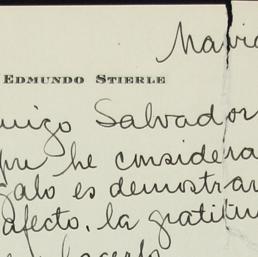 Navid
EDMUNDO STIERLE
migo Salvador
que he considera
galo es demostrar
afecto, la gratitu
hacerlo